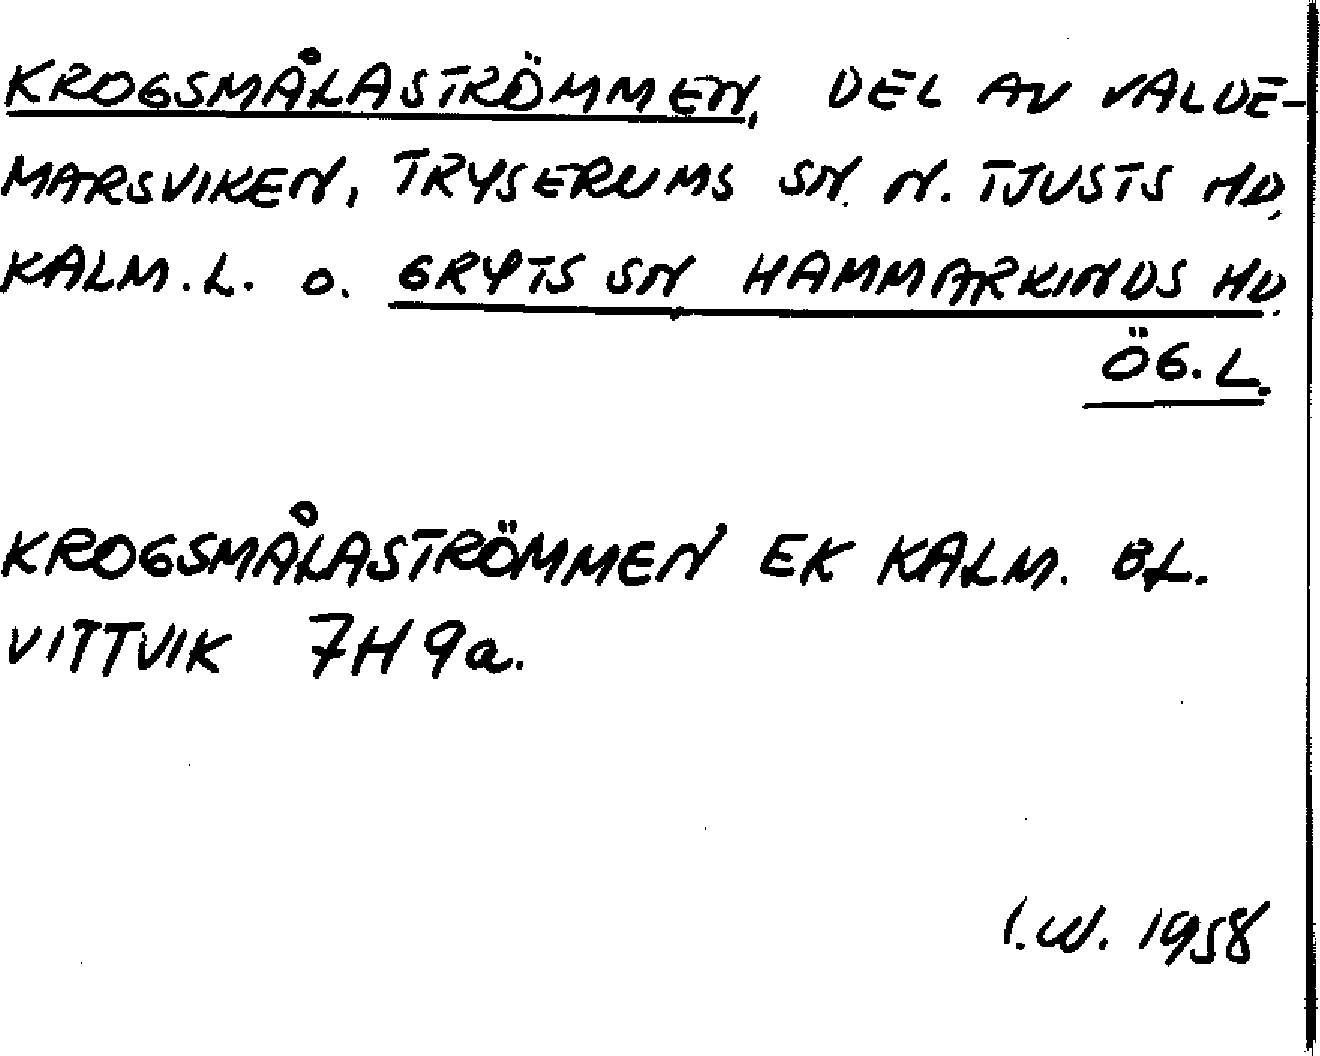 KROGSMÅLASTRÖMMEN, DEL AV VALDE-
MARSVIKEN, TRYSERUMS SN. N. TJUSTS HD,
KALM. L. o. GRYTS SN HAMMARKINDS HD.
ÖG. L.
KROGSMÅLASTRÖMMEN EK KALM. BL.
VITTVIK 7H 9a.
I.W. 1958